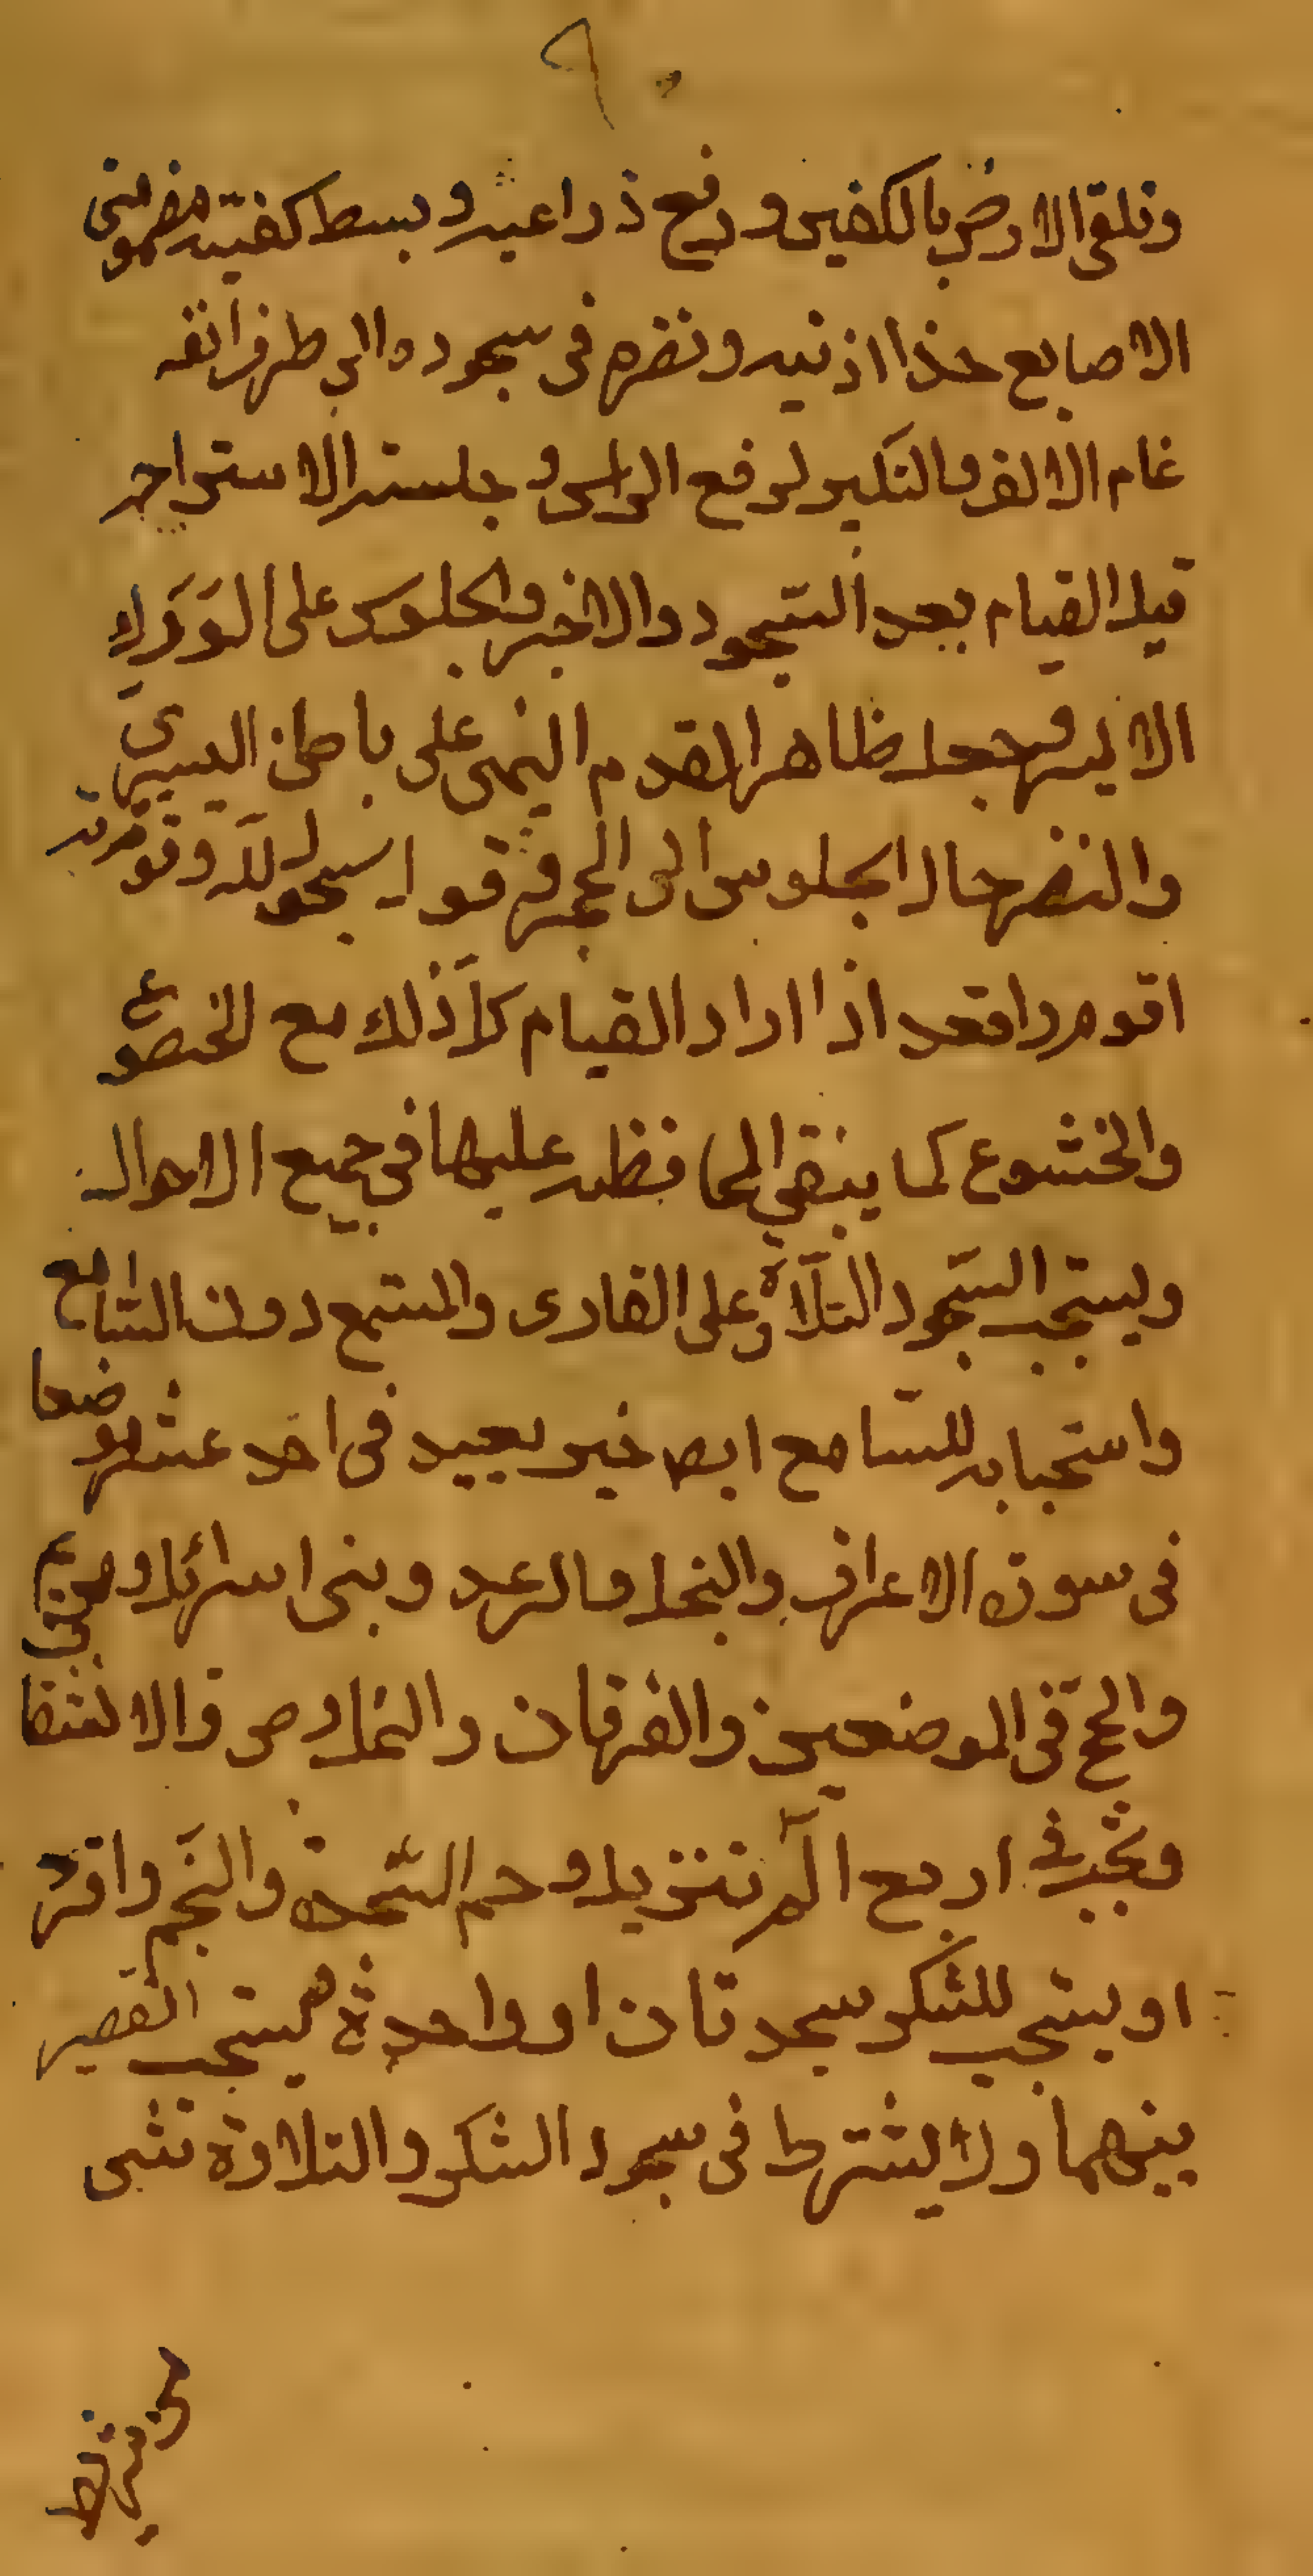 ٩٠
وتلقى الارض بالكفين ورفع ذراعيه وبسط كفيه مضمومتى
الاصابع حذا اذنيه ونضره فى سجوده الى طرف انفه
غام الانف والتكبير لرفع الراس وجلسته الاستراحه
قبل القيام بعد السجود والاخير والجلوس على الورك
الايسر وجعل ظاهر القدم اليمنى على باطن اليسرى
والنضر حال الجلوس الى الحجر وقول بحول الله وقوته
اقوم واقعد اذا اراد القيام كل ذلك مع الخصوع
والخشوع كما ينبغى المحافظه عليها فى جميع الاحوال
ويستحب السجود التلاوة على القارى والمستمع دون السامع
واستحبابه للسامع ايض غير بعيد فى احد عشر موضعا
فى سورة الاعراف والنحل والرعد وبنى اسرائيل ومريم
والحج فى الموضعين والفرقان والنمل وص والانشقاق
ويجب فى اربع الم تنزيل وحم السجدة والنجم واقرء
او يستحب للشكر سجدتان او واحدة ويستحب التعفير
بينهما ولا يشترط فى سجود الشكر والتلاوة شى